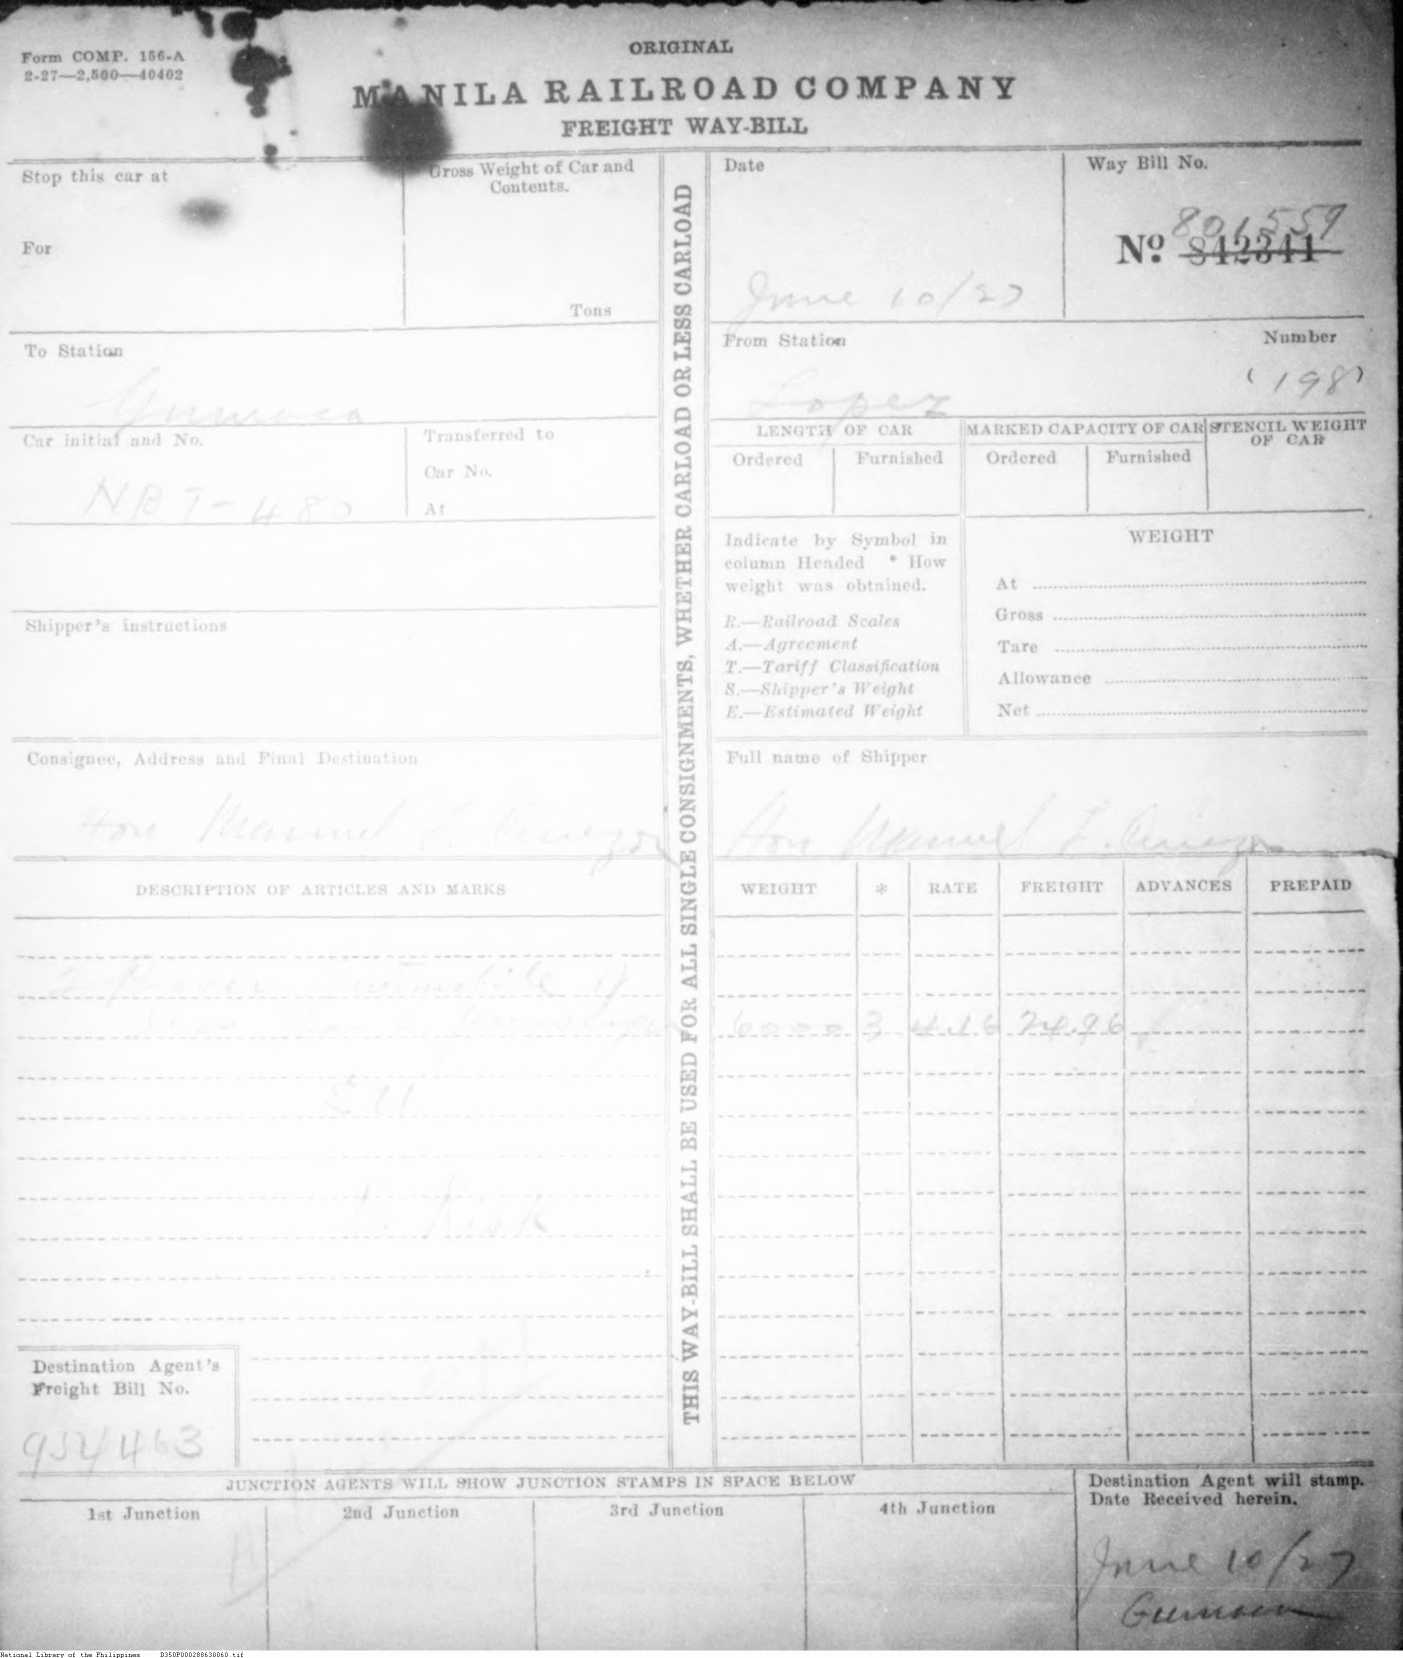 Form COMP. 156-A
2-27—2,500—40402
ORIGINAL
MANILA RAILROAD COMPANY
FREIGHT WAY-BILL
Stop this car at
For
Gross Weight of Car and
Contents.
Tons
Date
June 10/27
Way Bill No.
801559
No. 842341
To Station
Gumaca
From Station
Lopez
Number
(198)
Car initial and No.
NBT-480
Transferred to
Car No.
At
LENGTH OF CAR
Ordered
Furnished
MARKED CAPACITY OF CAR
Ordered
Furnished
STENCIL WEIGHT
OF CAR
Indicate by Symbol in
column Headed * How
weight was obtained.
R.—Railroad Scales
A.—Agreement
T.—Tariff Classification
S.—Shipper's Weight
E.—Estimated Weight
WEIGHT
At
Gross
Tare
Allowance
Net
Shipper's instructions
Consignee, Address and Final Destination
Hon Manuel L. Quezon
Full name of Shipper
Hon Manuel L. Quezon
THIS WAY-BILL SHALL BE USED FOR ALL SINGLE CONSIGNMENTS, WHETHER CARLOAD OR LESS CARLOAD
DESCRIPTION OF ARTICLES AND MARKS
WEIGHT
*
RATE
FREIGHT
ADVANCES
PREPAID
2
6000 3 4.16 24.96
Risk
Destination Agent's
Freight Bill No.
954463
JUNCTION AGENTS WILL SHOW JUNCTION STAMPS IN SPACE BELOW
1st Junction
2nd Junction
3rd Junction
4th Junction
Destination Agent will stamp.
Date Received herein.
June 10/27
Gumaca